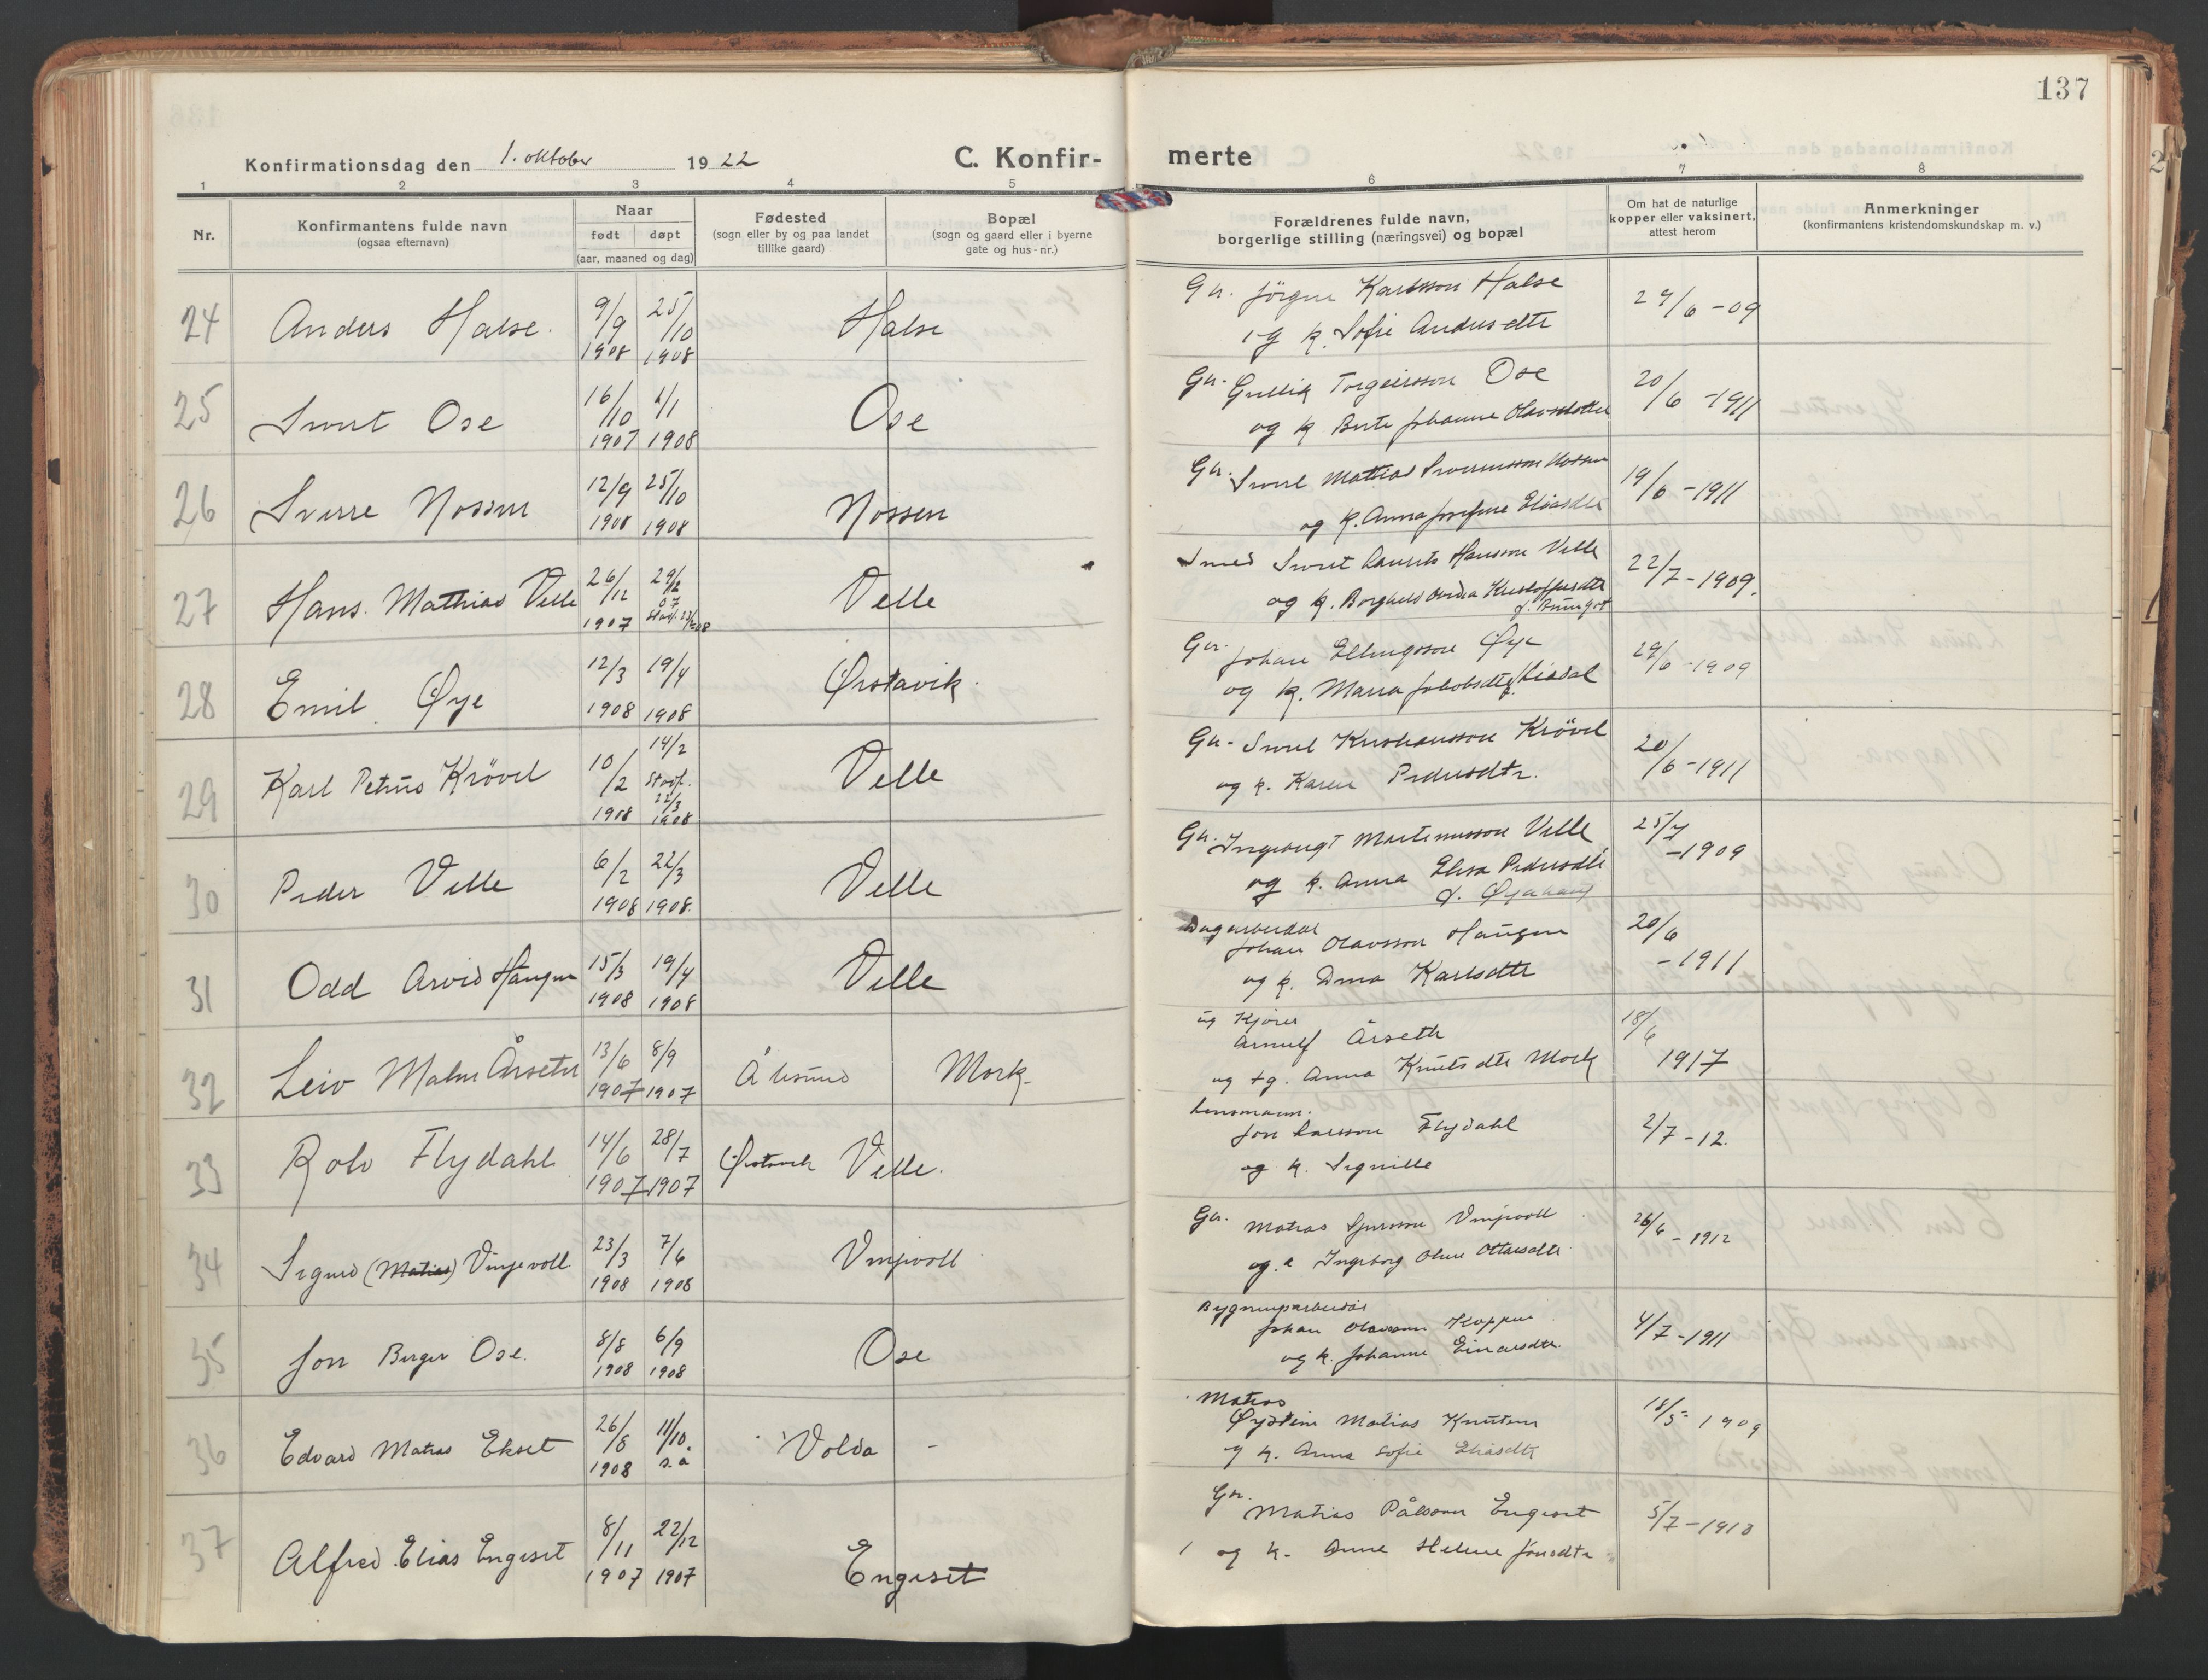 137
Konfirmationsdag den 1. oktober 1922
C. Konfir-
merte
1 2 3 4 5 6 7 8
Nr.
Konfirmantens fulde navn
(ogsaa efternavn)
Naar
født døpt
(aar, maaned og dag)
Fødested
(sogn eller by og paa landet
tillike gaard)
Bopæl
(sogn og gaard eller i byerne
gate og hus-nr.)
Forældrenes fulde navn,
borgerlige stilling (næringsvei) og bopæl
Om hat de naturlige
kopper eller vaksinert,
attest herom
Anmerkninger
(konfirmantens kristendomskundskap m. v.)
24 Anders Halse. 9/9 1908 25/10 1908 Halse
Gr. Jörgen Karlsson Halse
og k. Sofie Andersdtr
29/6 -09
25 Sivert Ose 16/10 1907 1/1 1908 Ose
Gr. Gullik Torgeirsson Ose
og k Berte Johanne Olavsdotter
20/6 -1911
26 Sverre Nossen 12/9 1908 25/10 1908 Nossen
Gr. Sivert Mattias Sivertsson Nossen
og k. Anna Josefine Eliasdtr
19/6 -1911
27 Hans. Mathias Velle 26/12 1907 29/12 07 Stadf. Velle
Smed Sivert Laurits Hansson Velle
og k. Borghild Kristoffersdtr
22/7 -1909.
28 Emil Øye 12/3 1908 19/4 1908 Ørstavik.
Gr. Johan Ellingsson Øye
og k. Maria Jakobsdtr f. Liadal
29/6 -1909
29 Karl Petrus Krövel 10/2 1908 14/2 Stadf. 22/3 1908 Velle
Gr. Sivert Kristiansson Krövel
og k. Karen Pedersdtr.
20/6 -1911
30 Peder Velle 6/2 1908 22/3 1908. Velle
Gr. Ingvongt Martinusson Velle
og k. Anna Elisa Pedersdtr
f. Øyehaug
25/7 -1909
31 Odd Arvid Haugen 15/3 1908 19/4 1908 Velle
Dagarbeidar
Johan Olavsson Haugen
og k. Dina Karlsdtr
20/6 -1911
32 Leiv Malm Årseth 13/6 1907 8/9 1907 Ålesund Mork.
ug Kjörer
Arnulf Årseth
og tg. Anna Knutsdtr Mork
18/6 1917
33 Rolv Flydahl 14/6 1907 28/7 1907 Ørstavik Velle.
Lensmann.
Jon Larsson Flydahl
og k. Signille
2/7 -12.
34 Sigurd (Matias) Vinjevoll 23/3 1908 7/6 1908 Vinjevoll
Gr. Matias Sjursson Vinjevoll
og k Ingeborg Oline Ottarsdtr
26/6 -1912
35 Jon Berger Ose. 8/8 1908 6/9 1908 Ose
Bygningsarbeidar
Johan Olavsson Koppen
og k. Johanne Einarsdtr.
4/7 -1911
36 Edvard Matias Ekset 26/8 1908 11/10. s.a Volda -
Matros
Øystein Matias Knutsen
og k. Anna Sofie Eliasdtr
18/5 -1909
37 Alfred Elias Engeset 8/11 1907 22/12 1907 Engeset
Gr. Matias Pålsson Engeset
og k. Anne Helene Jonsdtr
5/7 -1913